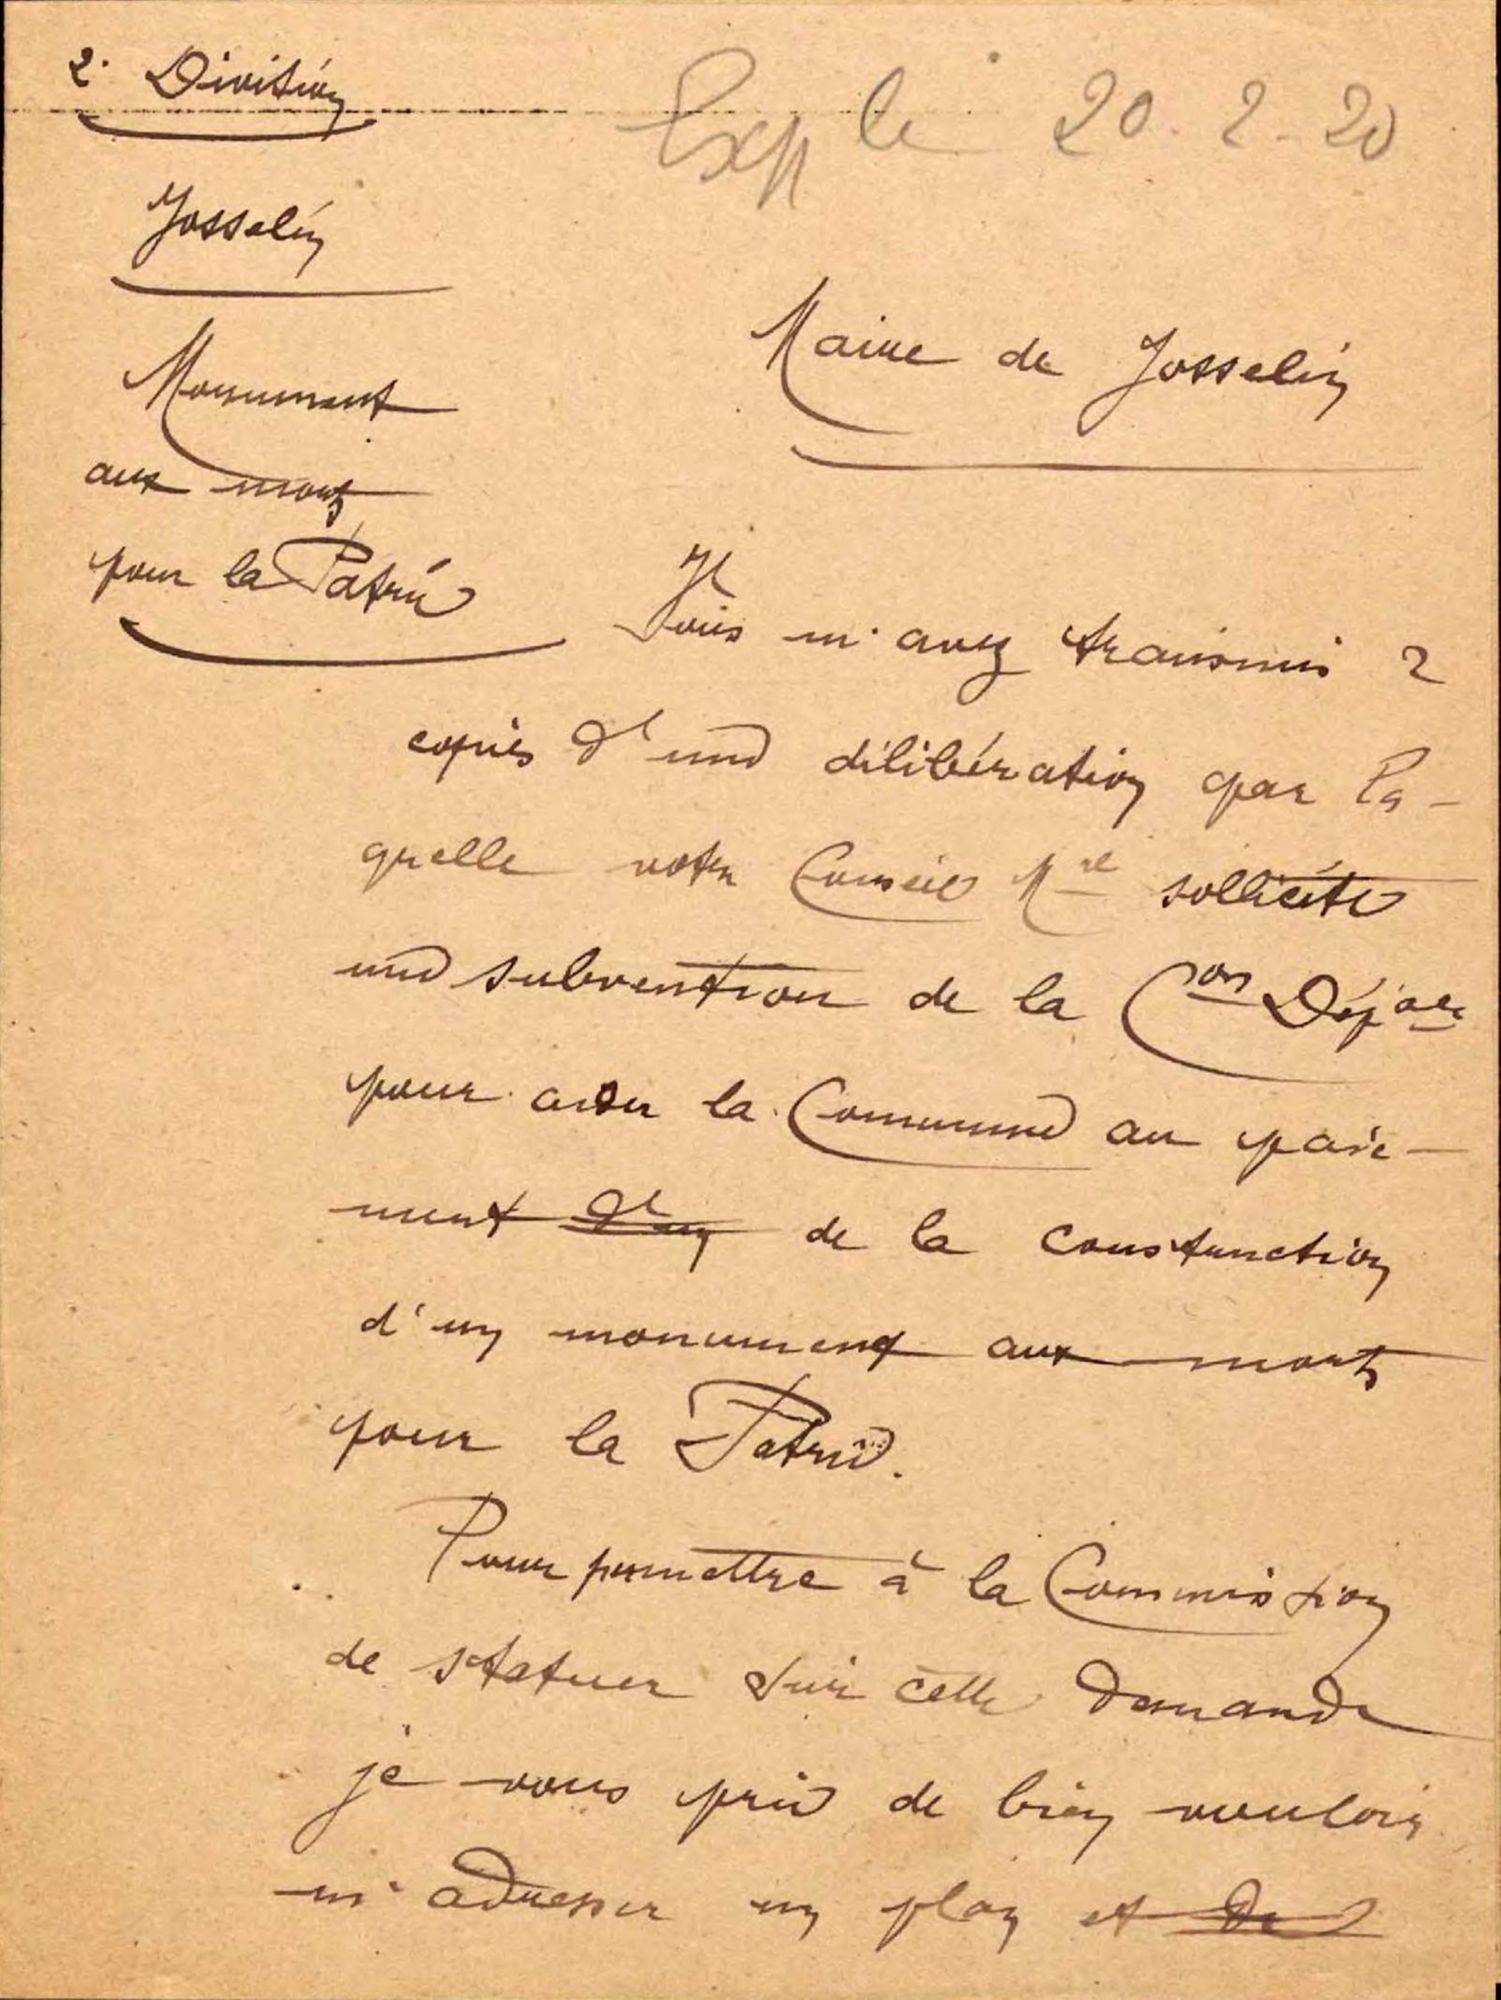 2e Division
Exp le 20-2-20
Josselin
Maire de Josselin
Monument
aux morts
pour la Patrie
Vous m'avez transmis 2
copies d'une délibération par la-
quelle votre Conseil Mal sollicite
une subvention de la Con Déple
pour aider la Commune au paie-
ment d'un de la construction
d'un monument aux morts
pour la Patrie.
Pour permettre à la Commission
de statuer sur cette demande
je vous prie de bien vouloir
m'adresser un plan et de